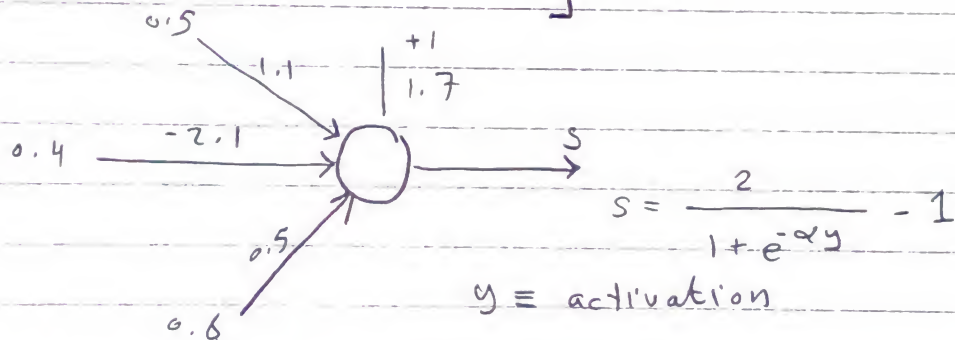 0.5
+1
1.1
1.7
0.4
-2.1
S
S = 2 / (1 + e^{-αy}) - 1
0.5
y ≡ activation
0.6